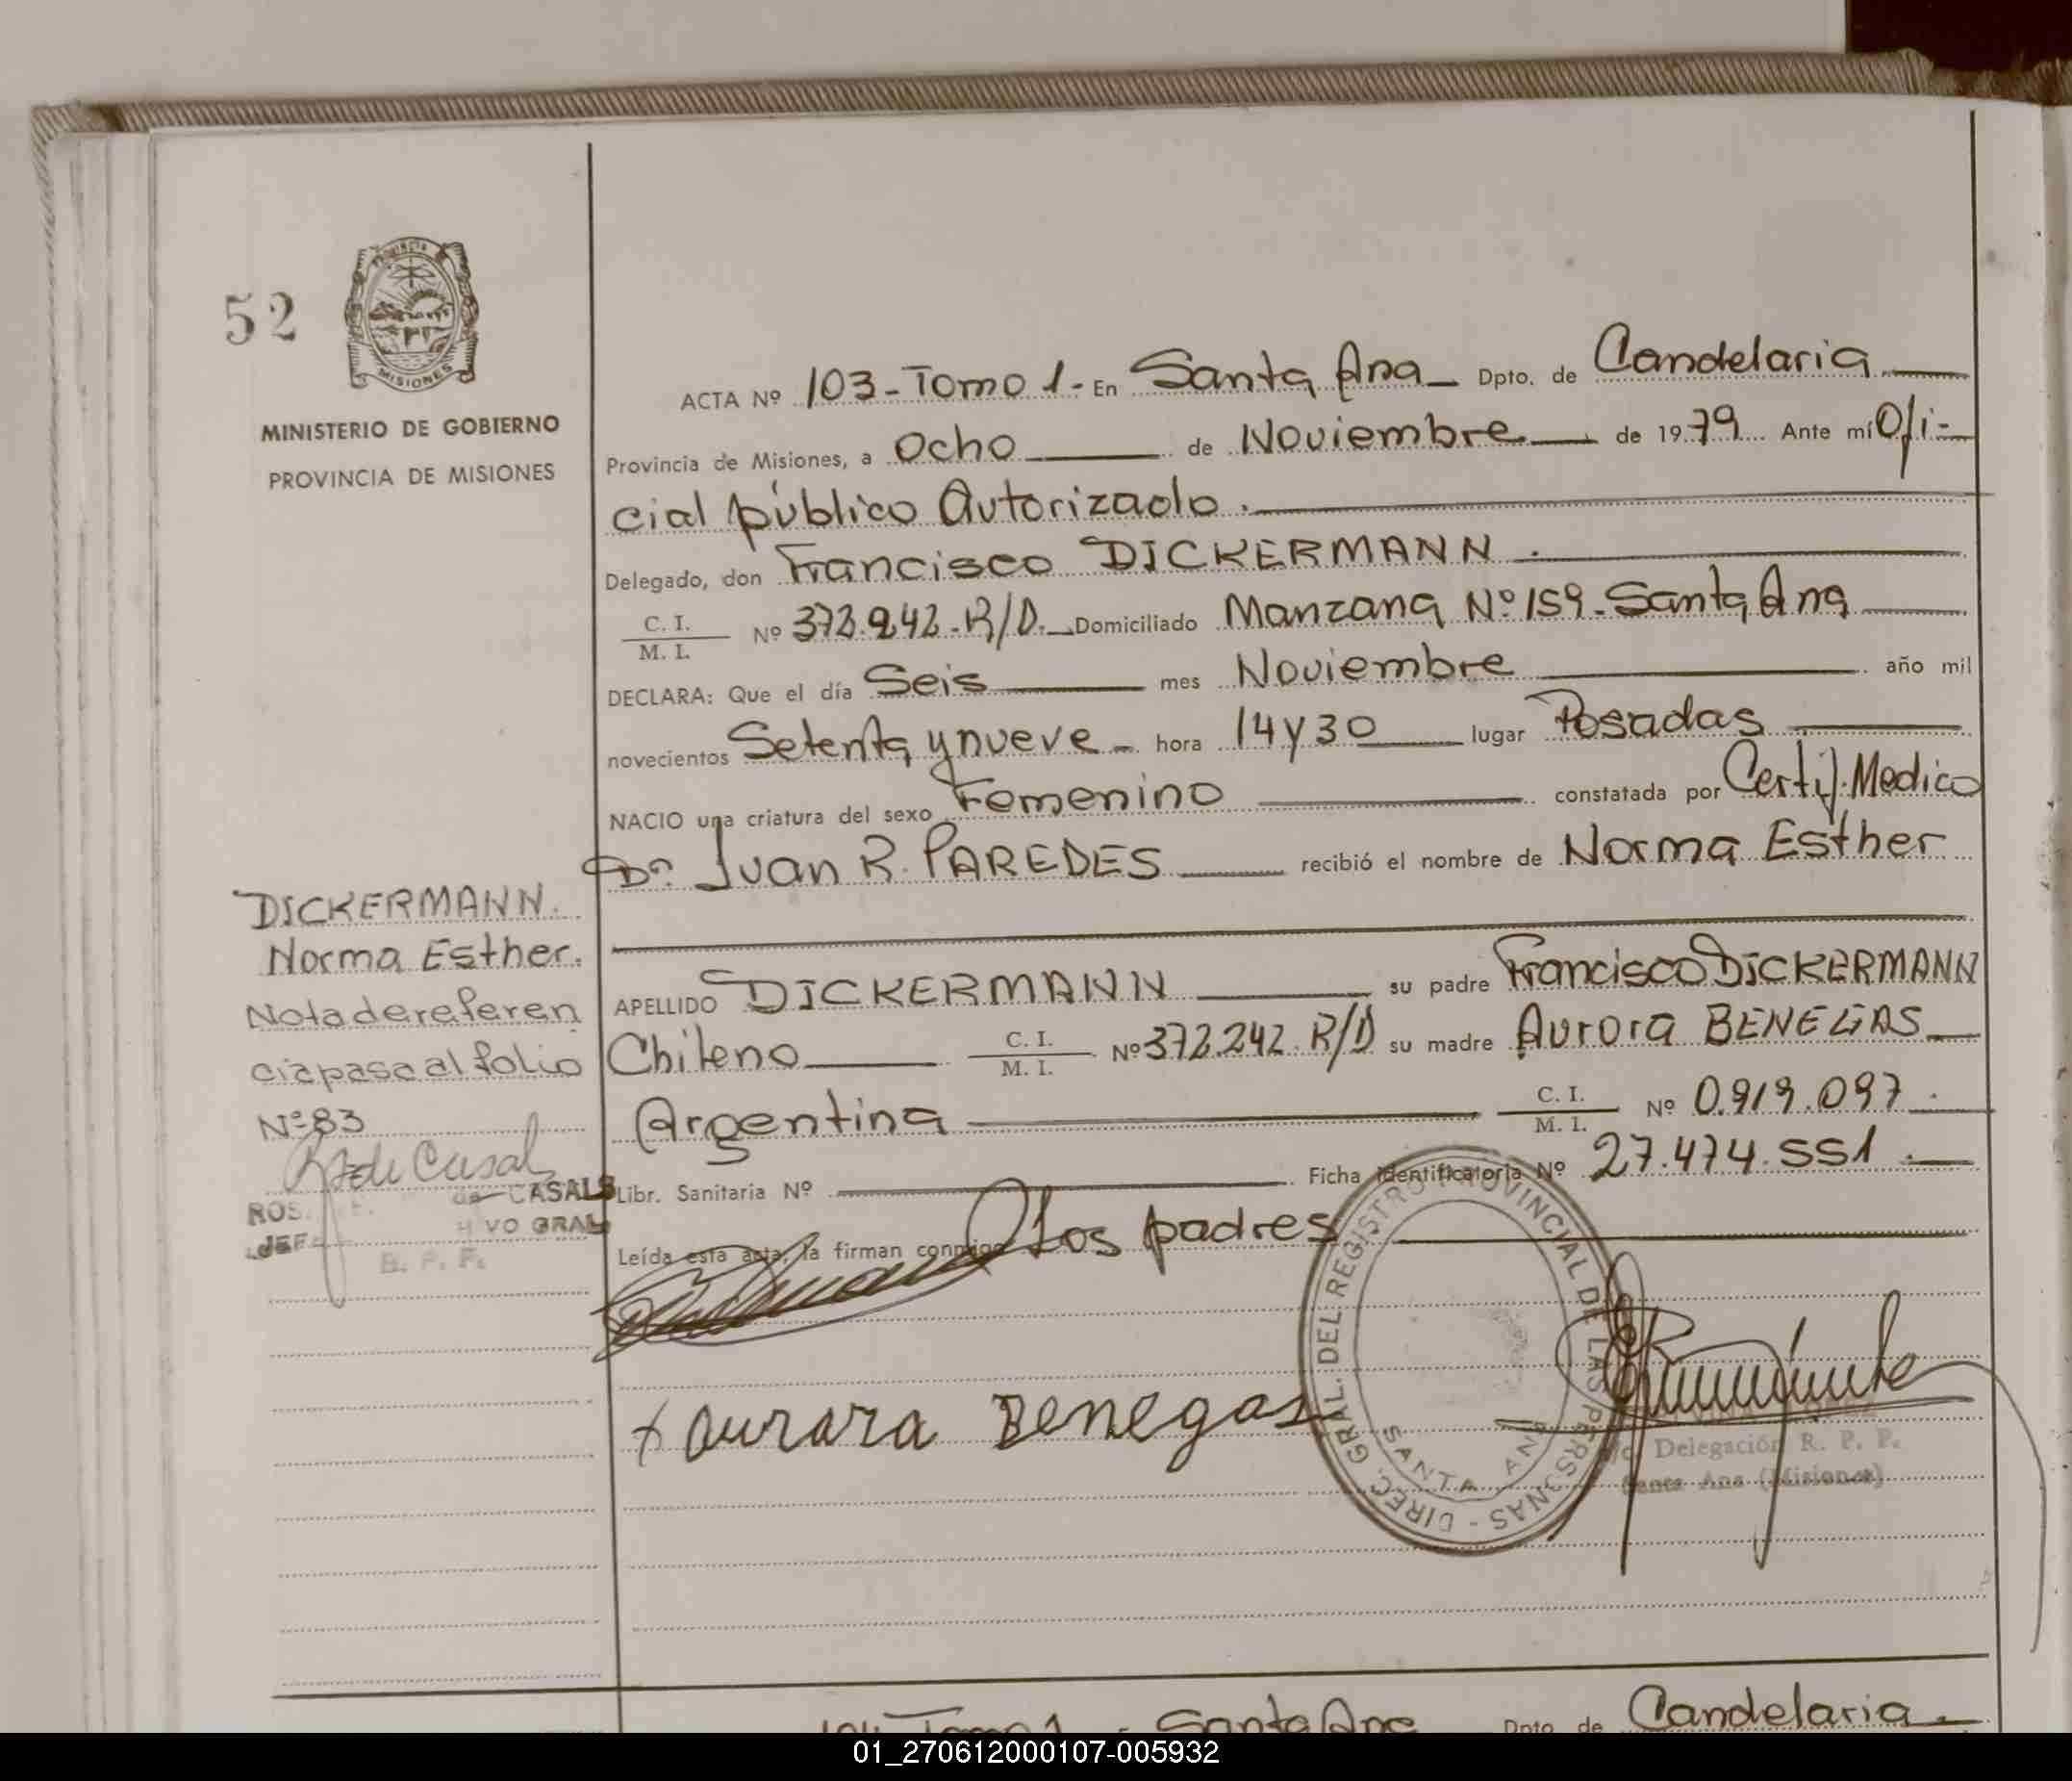 52
PROVINCIA
MISIONES
MINISTERIO DE GOBIERNO
PROVINCIA DE MISIONES
ACTA Nº 103-Tomo 1- En Santa Ana Dpto. de Candelaria
Provincia de Misiones, a Ocho de Noviembre de 1979 Ante mí Ofi-
cial público Autorizado.
Delegado, don Francisco DICKERMANN.
C. I.
M. I. Nº 372.242-R/D. Domiciliado Manzana Nº 159-Santa Ana
DECLARA: Que el día Seis mes Noviembre año mil
novecientos Setenta y nueve hora 14 y 30 lugar Posadas
NACIO una criatura del sexo Femenino constatada por Certif. Medico
Dr. Juan R. PAREDES recibió el nombre de Norma Esther
DICKERMANN.
Norma Esther.
Nota de referen
cia pasa al folio
Nº 83
de CASALS
ROS.
JEF
VO GRAL
R. P. P.
APELLIDO DICKERMANN su padre Francisco DICKERMANN
Chileno C. I.
M. I. Nº 372.242.R/D su madre Aurora
Argentina C. I.
M. I. Nº 0.919.097.
Libr. Sanitaria Nº Ficha Identificatoria Nº 27.474.551.
Leída esta acta, la firman conmigo Los padres
Aurora Benegas
DIREC. GRAL. DEL REGISTRO PROVINCIAL DE LAS PERSONAS
SANTA ANA
Delegación R. P. P.
Santa Ana (Misiones)
104 Tomo 1 - Santa Ana Dpto de Candelaria
01_270612000107-005932